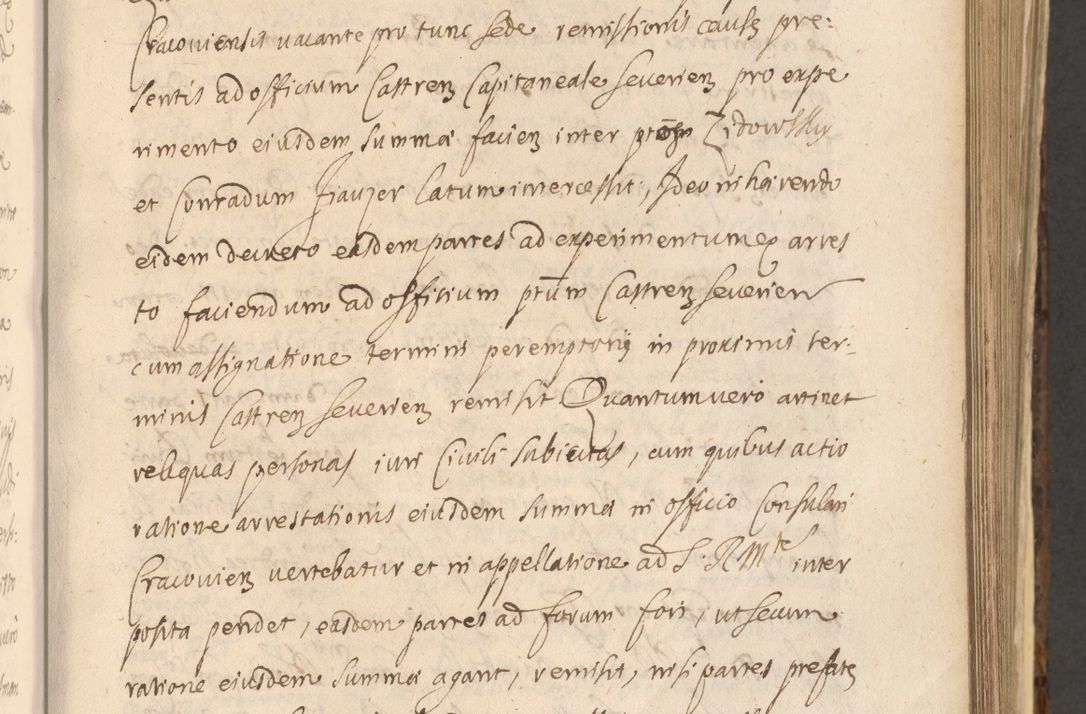 Cracoviensis vacante pro tunc sede remissionis causæ pre:
sentis ad officium Castrenz Capitaneale Severienz pro expe
rimento eiusdem summæ facienz inter ptum Zidowsky
et Conradum Frauzer latum intercessit, Ideo inhærendo
eidem decreto easdem partes ad experimentum ex arres
to faciendum ad officium ptum Castrenz Severien
cum assignatione termini peremptorij in proximis ter:
minis Castrenz Severienz remisit Quantum vero attinet
reliquas personas iuri Civili subiectas, cum quibus actio
ratione arrestationis eiusdem summæ in officio Consulari
Cracovienz vertebatur et in appellatione ad S. R Mte inter
posita pendet, easdem partes ad forum fori, ut secum
ratione eiusdem summæ agant, remisit, nisi partes prefatæ